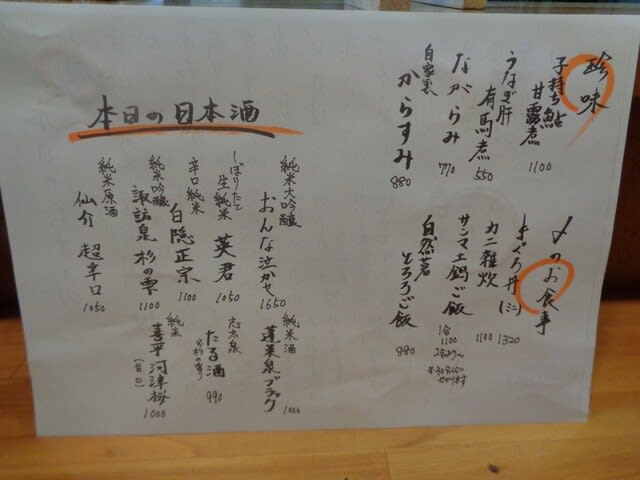 珍味
子持ち鮎
甘露煮
1100
うなぎ肝
有馬煮
550
ながらみ
770
自家製
からすみ
880
〆のお食事
まぐろ丼(ミニ)
1320
カニ雑炊
1100
サンマ土鍋ご飯
1合
1100
2合より〜
自然薯
とろろご飯
880
本日の日本酒
純米大吟醸
おんな泣かせ
1650
しぼりたて
生純米
英君
1050
辛口純米
白隠正宗
1100
純米吟醸
諏訪泉 杉の雫
1100
純米原酒
仙介 超辛口
1050
純米酒
蓬莱泉ブラック
1000
志太泉
たる酒
990
純米
喜平 河津桜
(甘口)
1000